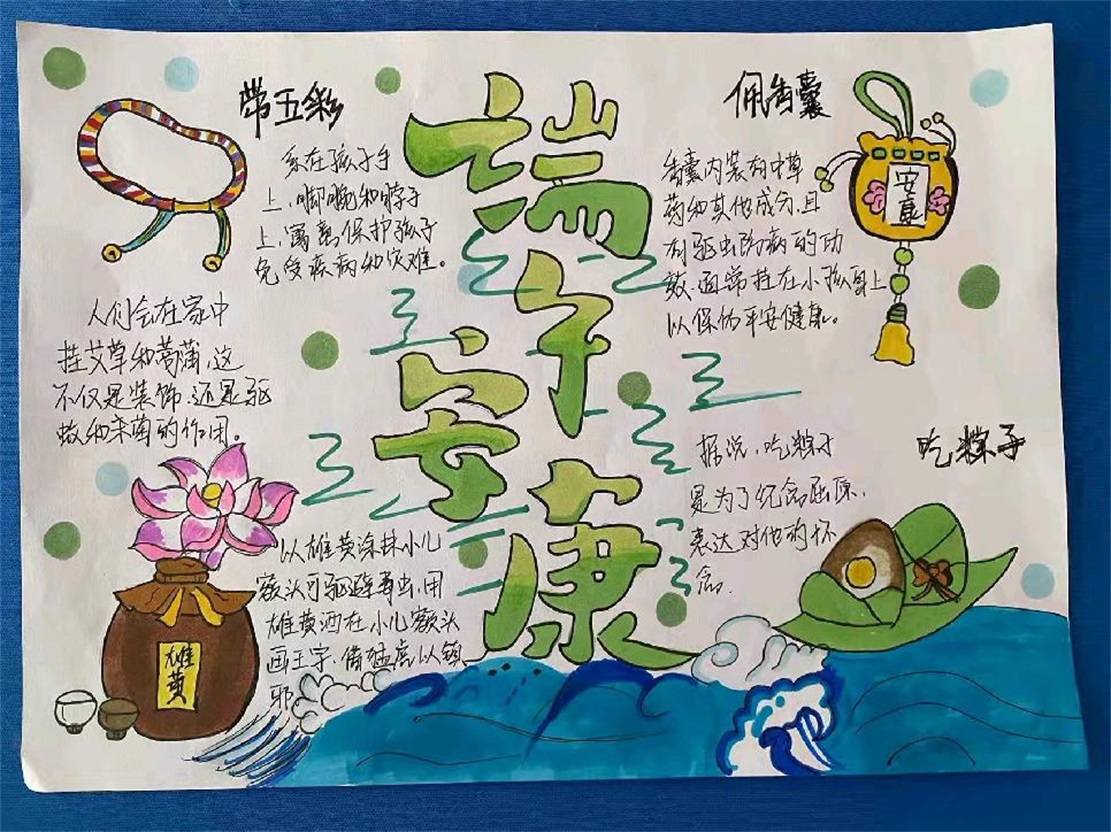 端午
安康
带五彩
系在孩子手
上、脚腕和脖子
上,寓意保护孩子
免受疾病和灾难。
佩香囊
香囊内装有中草
药和其他成分,且
有驱虫防病的功
效,通常挂在小孩身上
以保佑平安健康。
安康
人们会在家中
挂艾草和菖蒲,这
不仅是装饰,还是驱
蚊和杀菌的作用。
以雄黄涂抹小儿
额头可驱避毒虫,用
雄黄酒在小儿额头
画王字,借猛虎以镇
邪
雄黄
吃粽子
据说,吃粽子
是为了纪念屈原,
表达对他的怀
念.